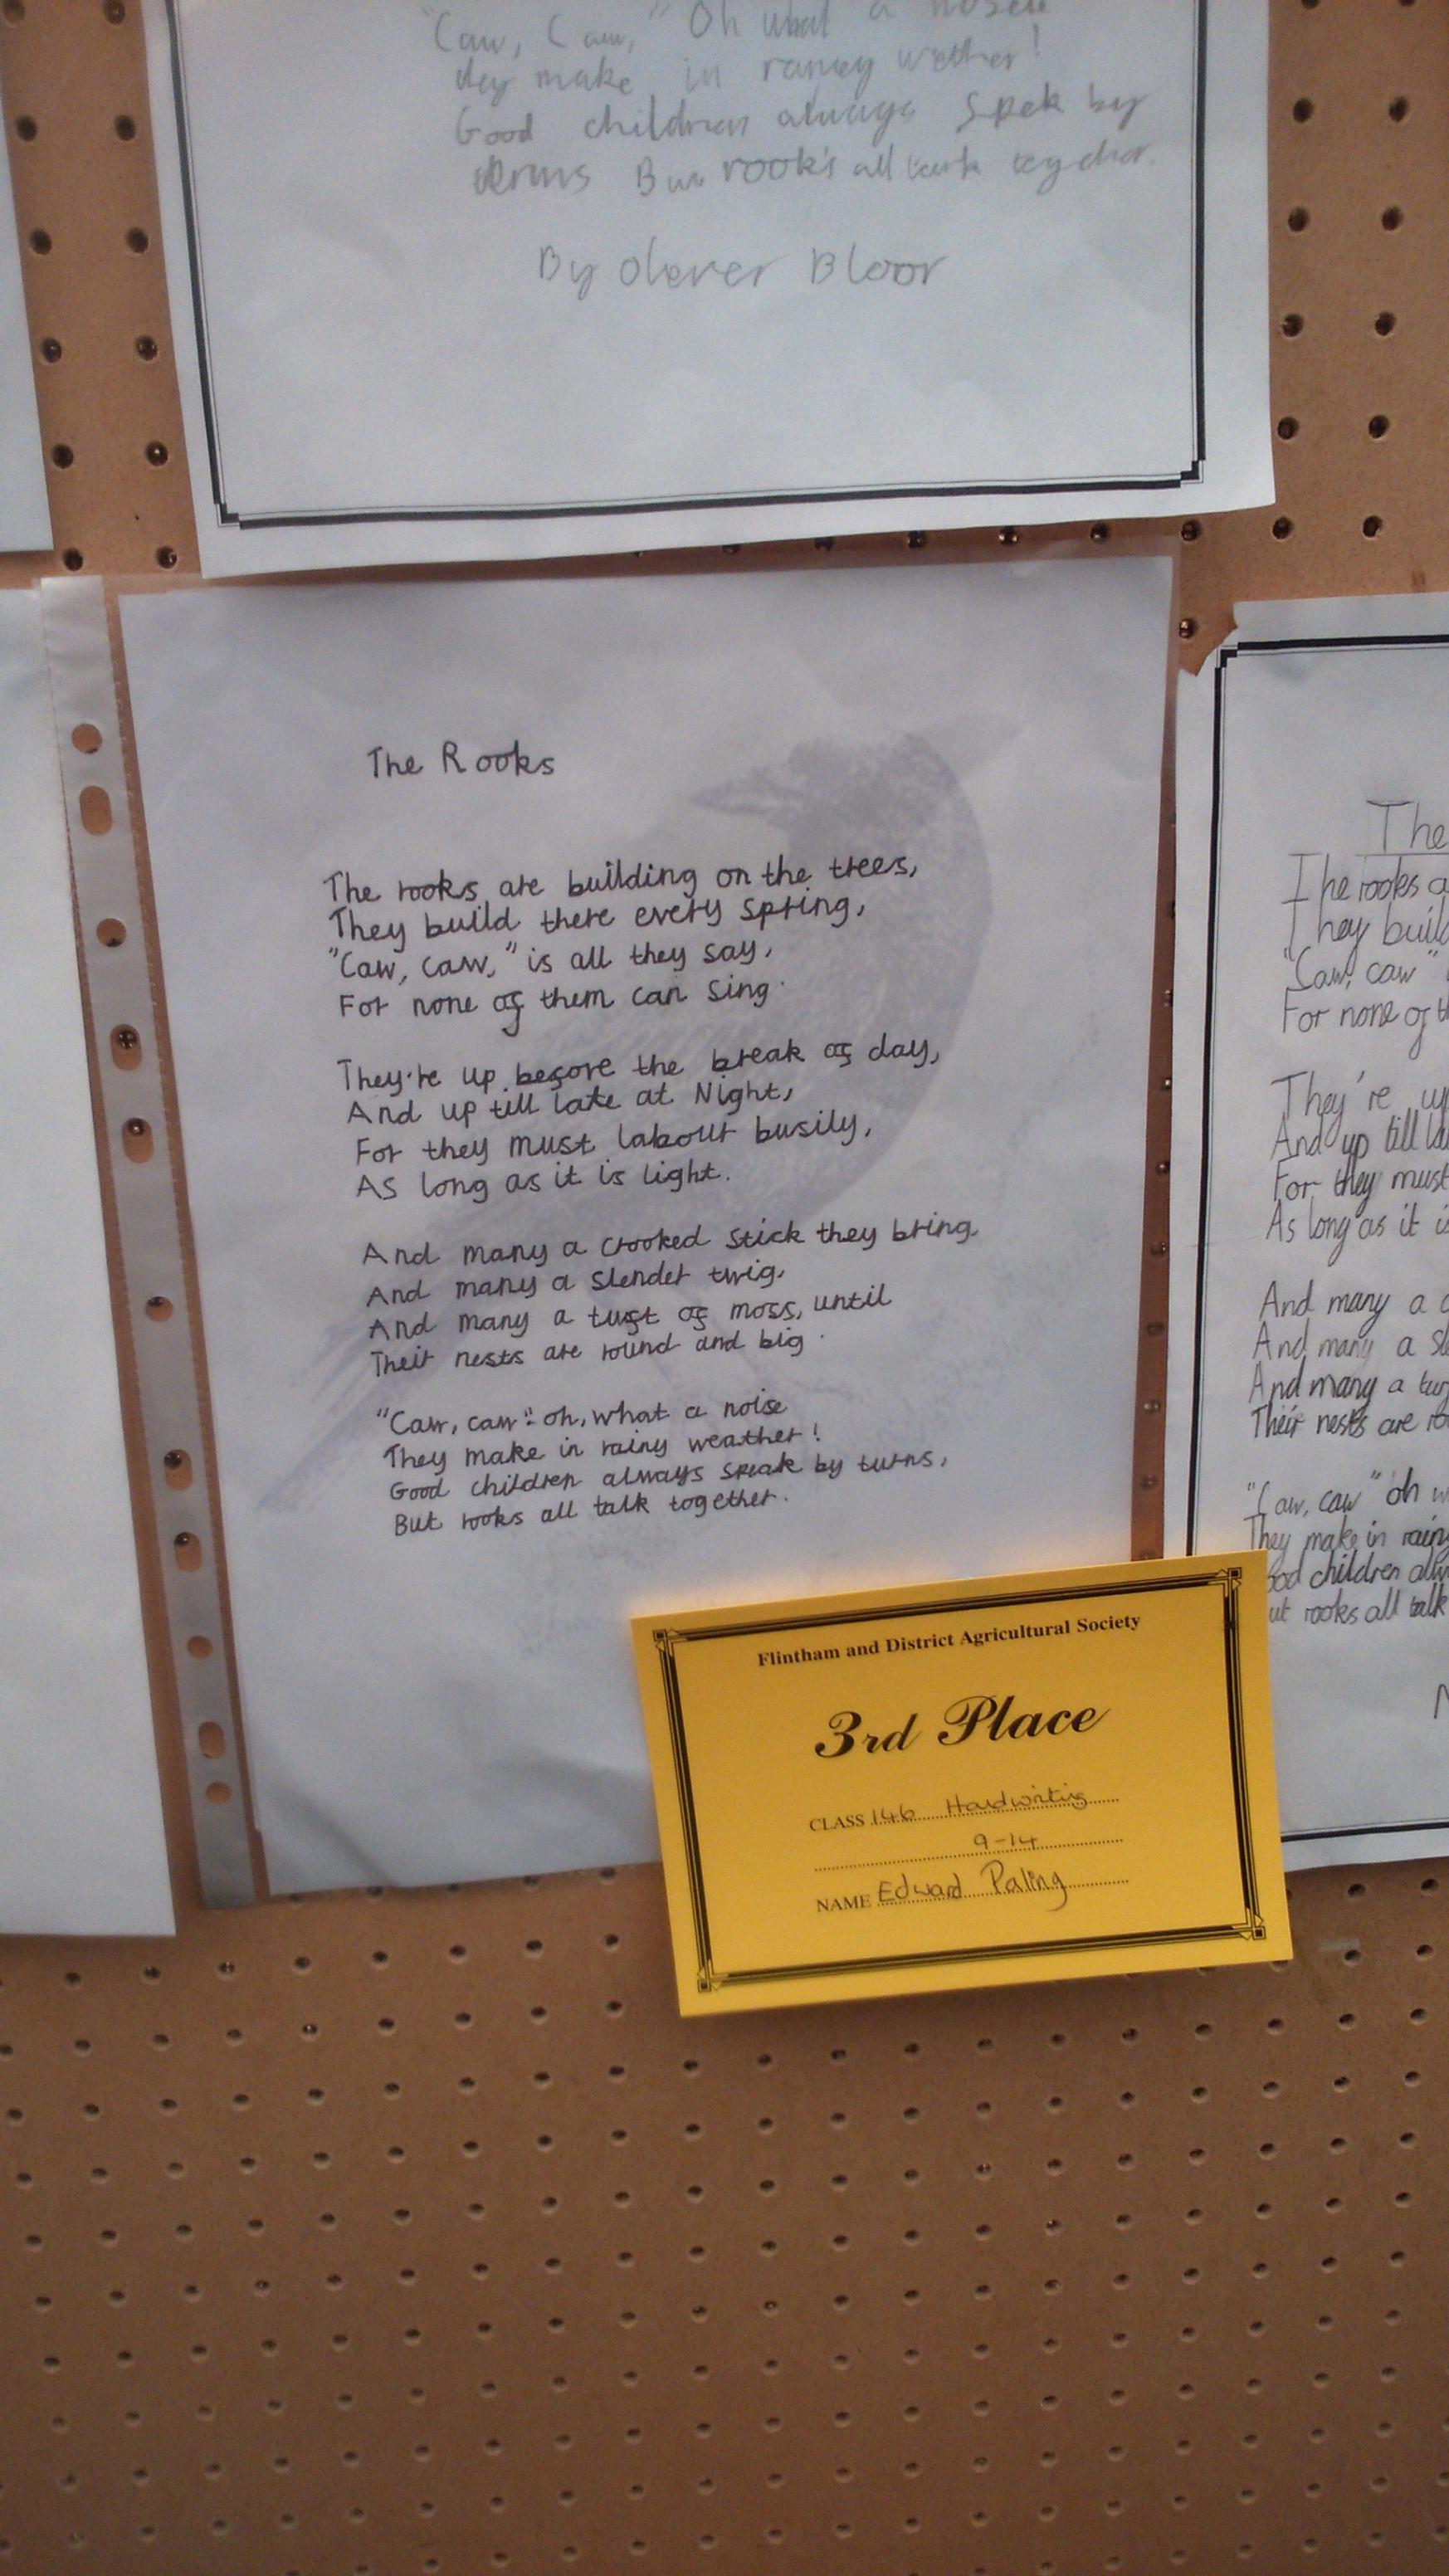 "Caw, Caw," Oh what a
they make in raney wether!
Good children always Spek by
terms But rook's all tark
By Olever Bloor
The Rooks
The rooks are building on the trees,
They build there every spring,
"Caw, caw," is all they say,
For none of them can sing.
They're up before the break of day,
And up till late at Night,
For they must labour busily,
As long as it is light.
And many a crooked stick they bring
And many a slender twig,
And many a tuft of moss, until
Their nests are round and big.
"Caw, caw": oh, what a noise
They make in rainy weather!
Good children always speak by turns,
But rooks all talk together.
The
The rooks a
They build
"Caw, caw"
For none of th
They're up
And up till la
For they must
As long as it is
And many a c
And many a sle
And many a tuf
Their nests are ro
"Caw, caw" oh w
They make in rainy
ood children alw
ut rooks all talk
Flintham and District Agricultural Society
3rd Place
CLASS 146 Handwriting
9-14
NAME Edward Paling